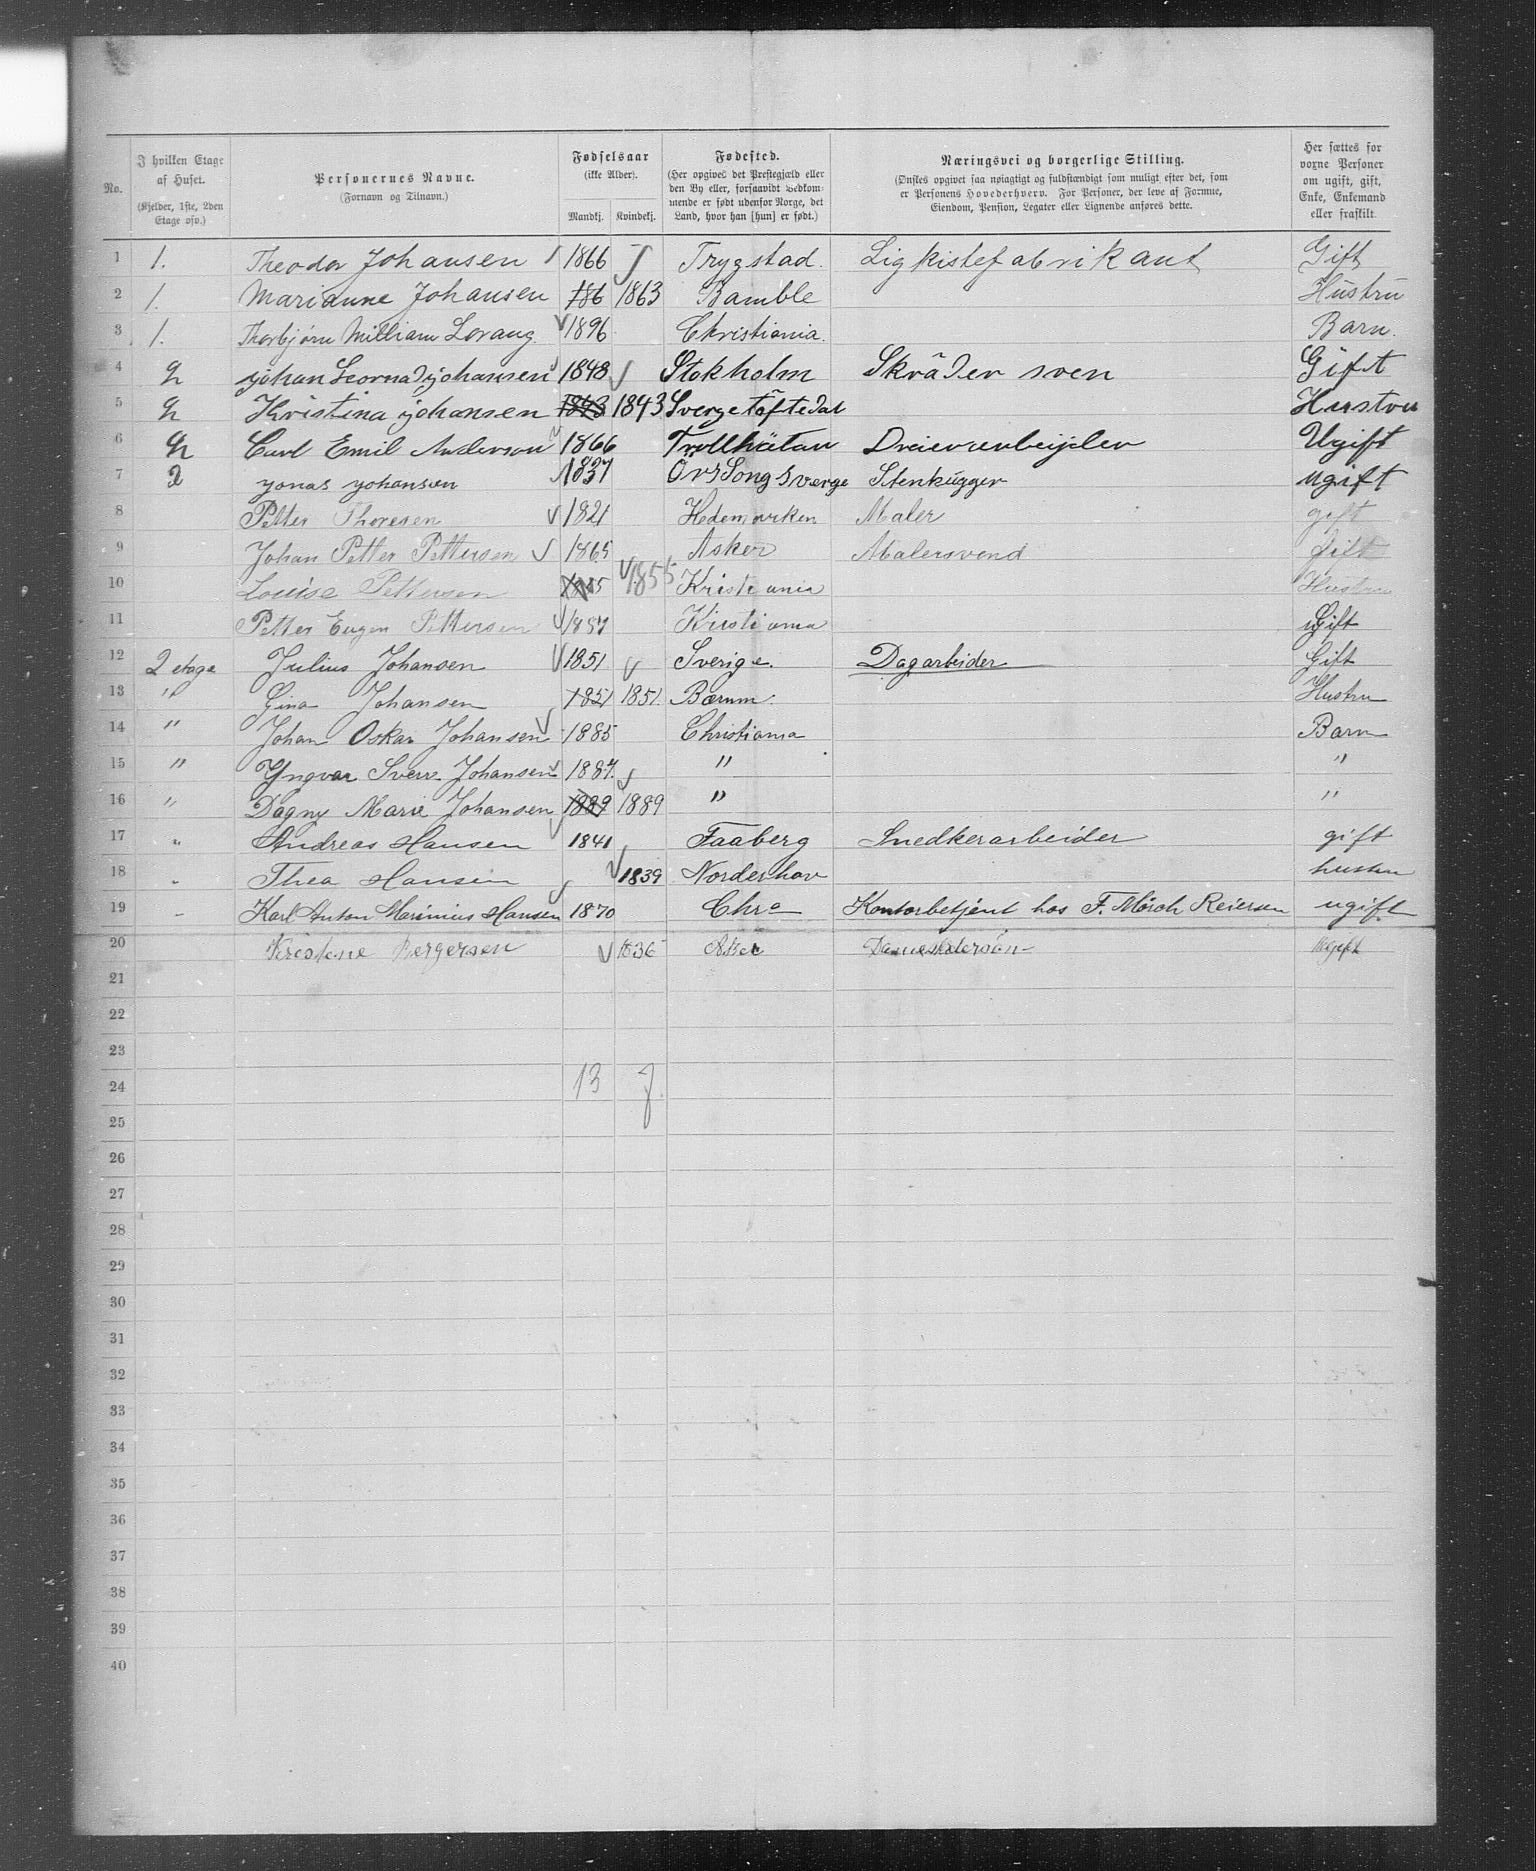 No.
I hvilken Etage af Huset.
(Kjelder, 1ste, 2den Etage osv.)
Personernes Navne.
(Fornavn og Tilnavn.)
Fødselsaar
(ikke Alder).
Mandkj. Kvindekj.
Fødested.
(Her opgives det Prestegjæld eller den By eller, forsaavidt Vedkommende er født udenfor Norge, det Land, hvor han [hun] er født.)
Næringsvei og borgerlige Stilling.
(Ønskes opgivet saa nøiagtigt og fuldstændigt som muligt efter det, som er Personens Hovederhverv. For Personer, der leve af Formue, Eiendom, Pension, Legater eller Lignende anføres dette.
Her sættes for voxne Personer om ugift, gift, Enke, Enkemand eller fraskilt.
1 1. Theodor Johansen 1866 Trygstad. Ligkistefabrikant Gift
2 1. Marianne Johansen 186 1863 Bamble Hustru
3 1. Thorbjørn William Lorang. 1896 Christiania. Barn.
4 2 johan Leonad johansen 1848 Stokholm Skräder sven Gift
5 2 Kristina johansen 1843 1843 Sverge töftedal Hustru
6 2 Carl Emil Anderson 1866 Trollhätan Dreierarbeijder Ugift
7 2 jonas johansen 1837 Sverge Stenhügger ugift
8 Petter Thoresen 1821 Hedemarken Maler gift
9 Johan Petter Pettersen 1865 Asker Malersvend Gift
10 Louise Pettersen 1855 Kristiania Hustru
11 Petter Eugen Pettersen 1887 Kristiania Ugift
12 2 etage Julius Johansen 1851 Sverige. Dagarbeider Gift
13 " Gina Johansen 1851 1851. Bærum. Hustru
14 " Johan Oskar Johansen 1885 Christiania Barn
15 " Yngvar Sverre Johansen 1887. " "
16 " Dagny Marie Johansen 1889 1889 " "
17 " Andreas Hansen 1841 Faaberg Snedkerarbeider gift
18 " Thea Hansen 1839 Norderhov hustru
19 " Karl Anton Marinius Hansen 1870 Chra Kontorbetjent hos F. Mörch Reiersen ugift
20 Kristine Bergersen 1836 Aker Ugift
21
22
23
24 13 7.
25
26
27
28
29
30
31
32
33
34
35
36
37
38
39
40